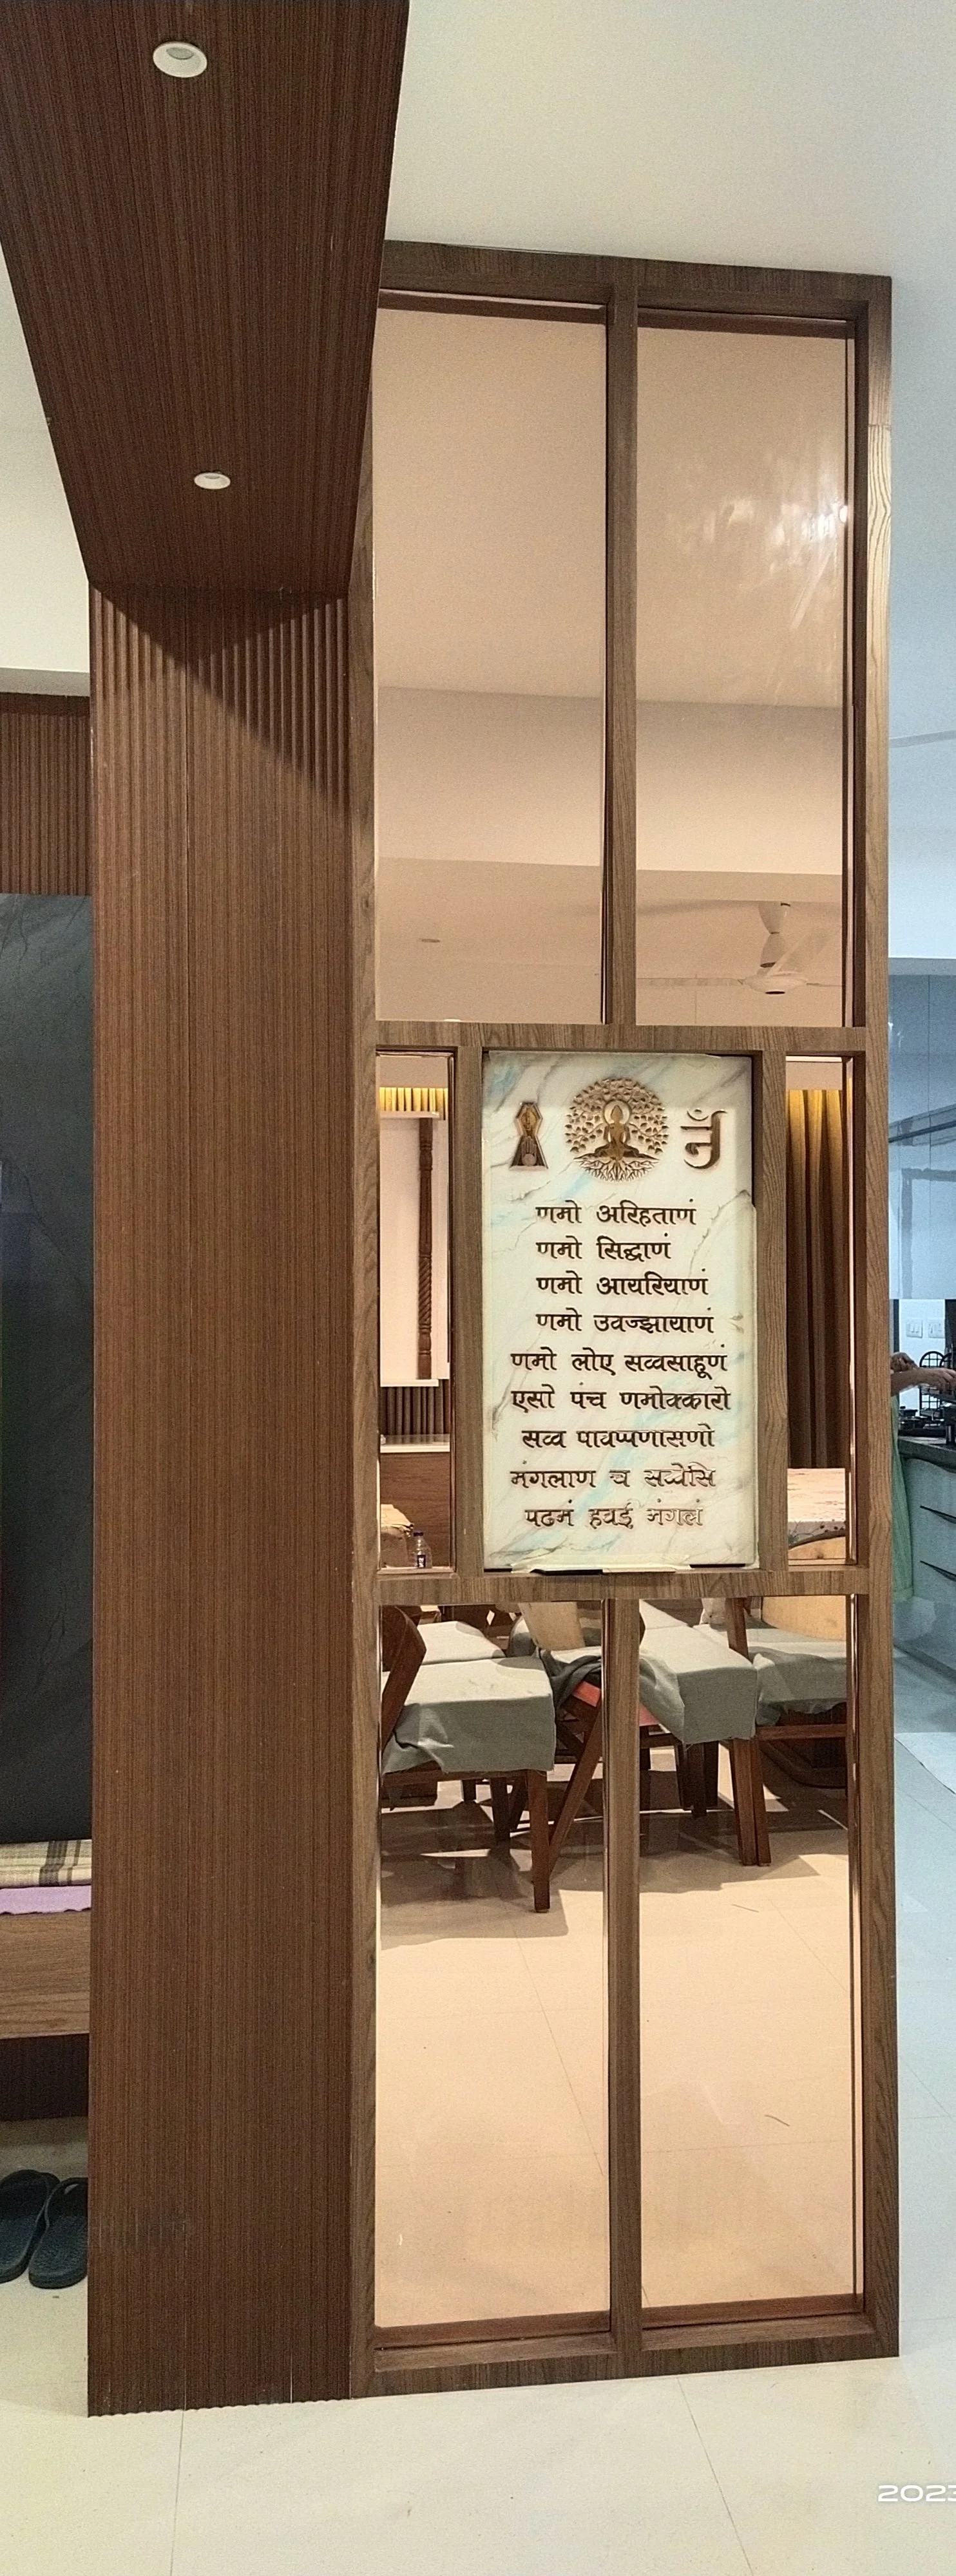 णमो अरिहताणं
णमो सिद्धाणं
णमो आयरियाणं
णमो उवज्झायाणं
णमो लोए सव्वसाहूणं
एसो पंच णमोक्कारो
सव्व पावप्पणासणो
मंगलाण च सव्वेसि
पढमं हवई मंगलं
2023